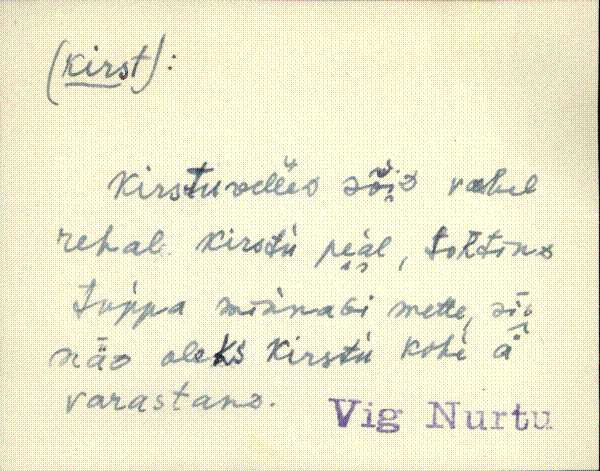 (kirst):
Kirstuvelles sõis vahel
rehal kirstu peäl, tohtins
tuppa minnagi mette, sis
näo oleks kirstu kohe ä
varastans.
Vig Nurtu